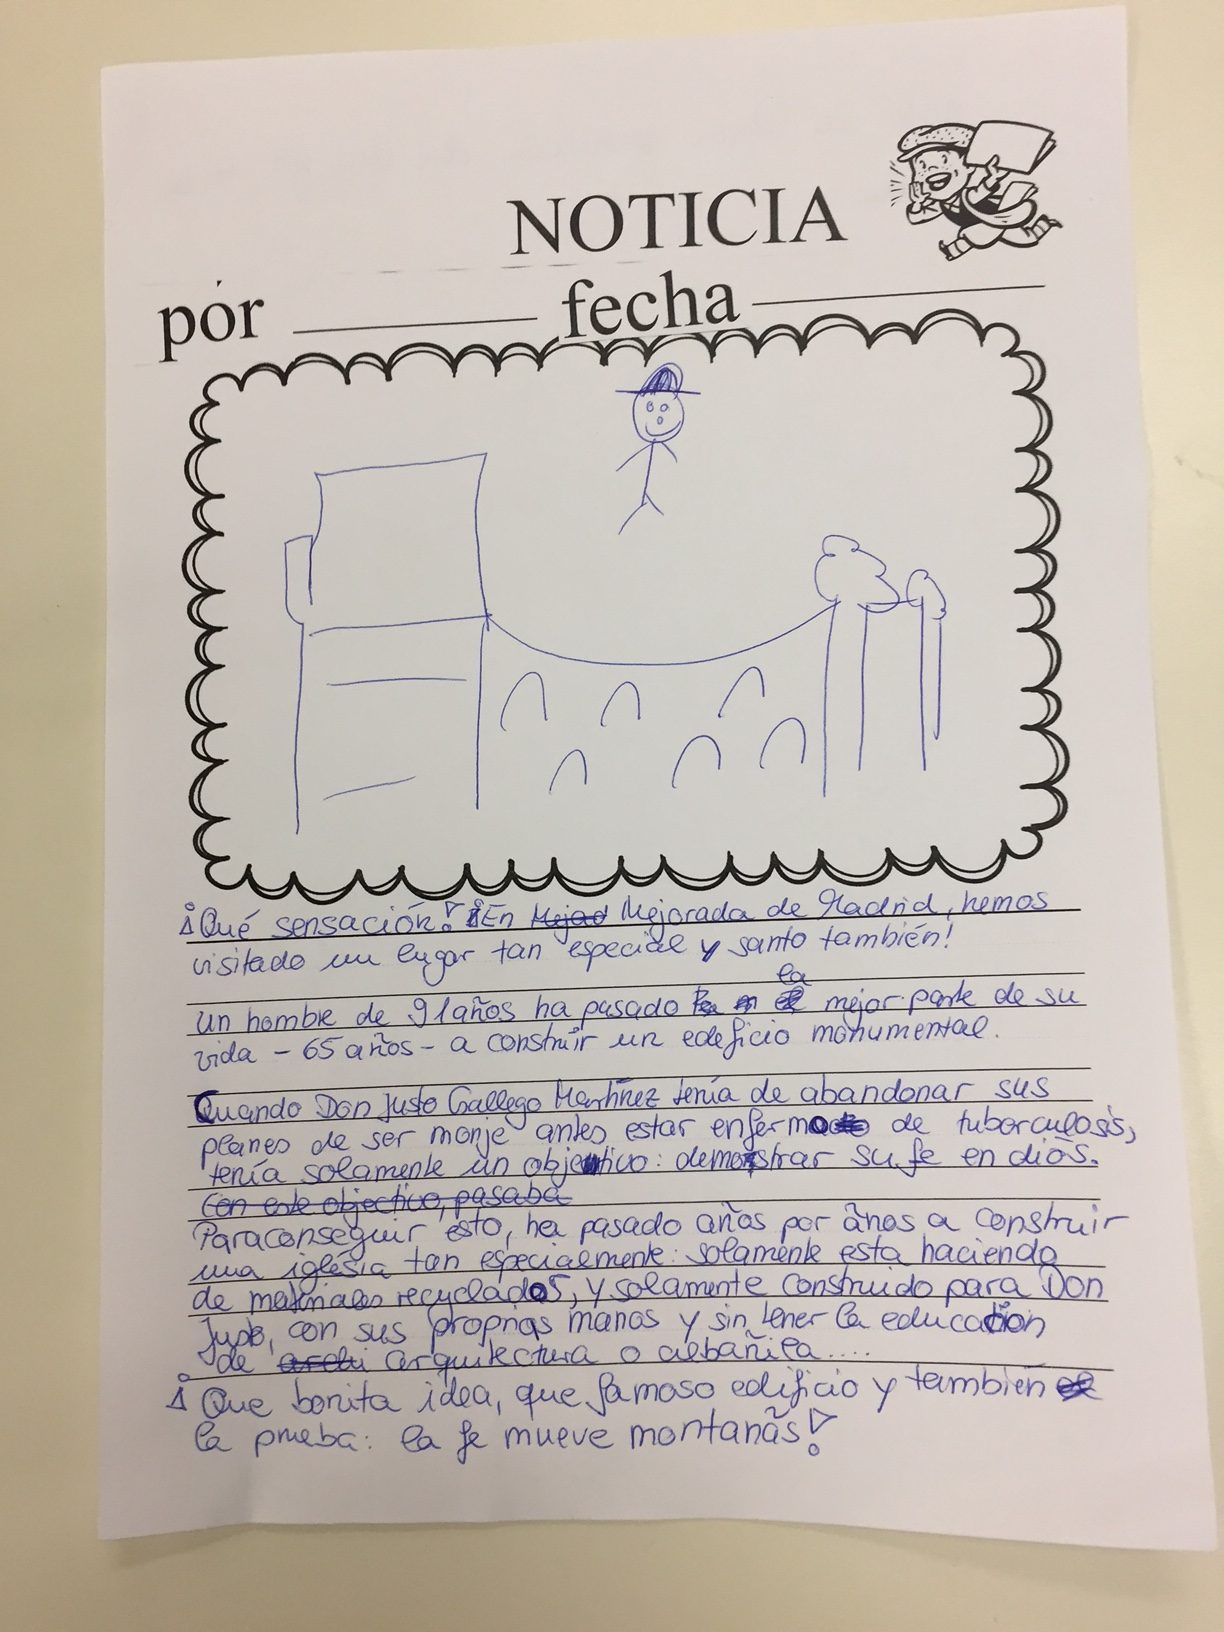 NOTICIA
por ________ fecha ________
¡Qué sensación! ¡En Mejorada de Madrid, hemos
visitado un lugar tan especial y santo también!
la
un hombre de 91 años ha pasado mejor parte de su
vida - 65 años - a construir un edeficio monumental.
Cuando Don Justo Gallego Martínez tenía de abandonar sus
planes de ser monje antes estar enfermo de tuborculosis,
tenía solamente un objectivo: demonstrar su fe en dios.
Con este objectivo, pasaba
Para conseguir esto, ha pasado años por años a construir
una iglésia tan especialmente: solamente esta haciendo
de materiales recyclados, y solamente construido para Don
Justo, con sus proprias manos y sin tener la education
de archi arquitectura o albañila....
¡Que bonita idea, que famoso edificio y también
la prueba: la fe mueve montañas!